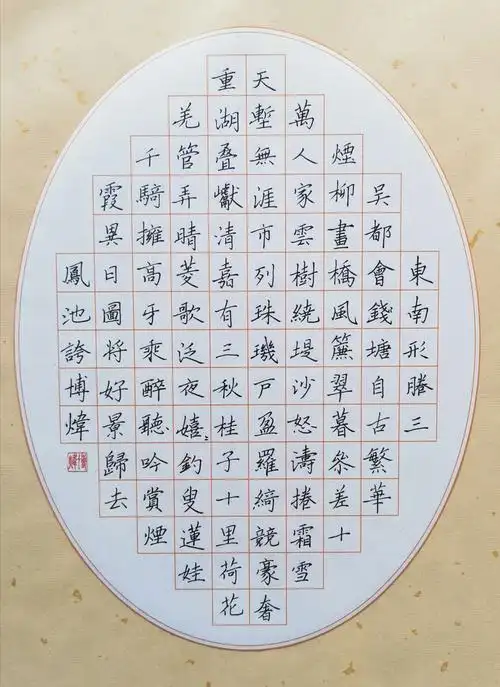 東南形勝三
吳都會錢塘自古繁華
煙柳畫橋風簾翠暮參差十
萬人家雲樹繞堤沙怒濤捲霜雪
天塹無涯市列珠璣戶盈羅綺競豪奢
重湖叠巘清嘉有三秋桂子十里荷花
羌管弄晴菱歌泛夜嬉〻釣叟蓮娃
千騎擁高牙乘醉聽吟賞煙
霞異日圖將好景歸去
鳳池誇博煒